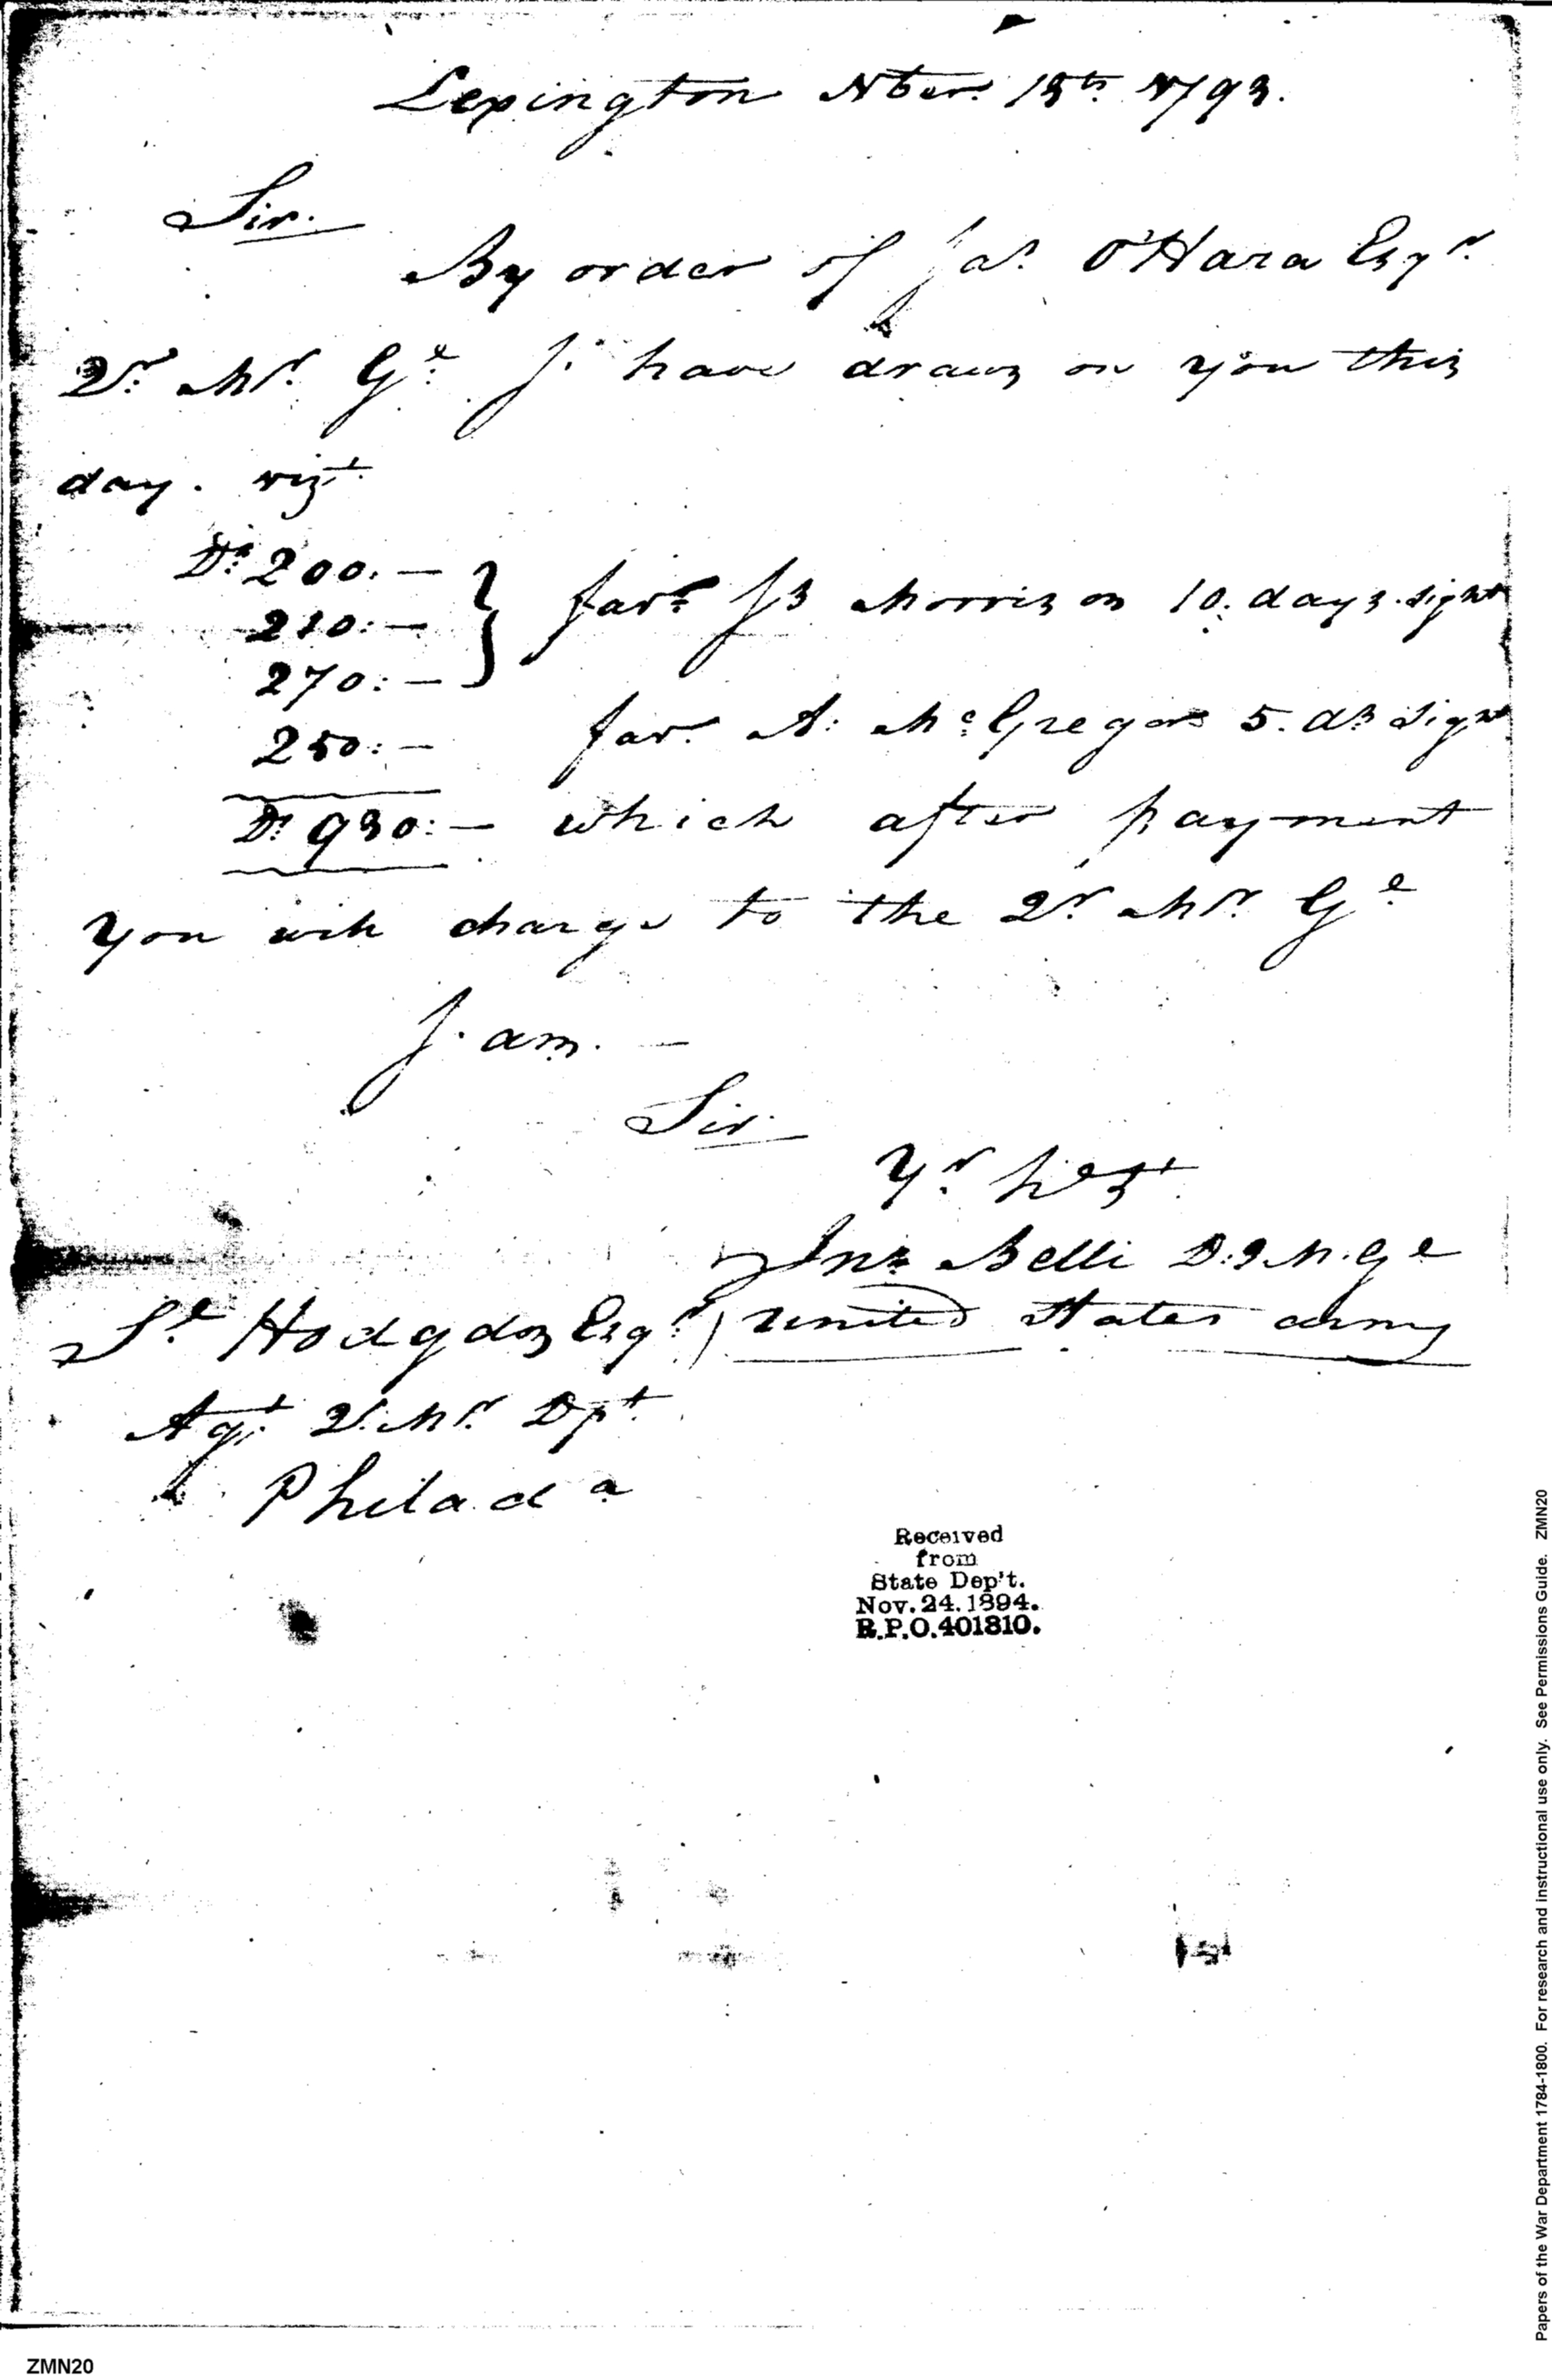 Lexington Nber. 13th. 1793.
Sir.
By order of Jas. O'Hara Esqr.
Qr. Mr. Ge. J. have drawn on you this
day. vizt.
Ds. 200:—
210:— } favr. Js Morrison 10. days. sight
270:—
250:— favr. A: McGregor 5. ds sight
Ds. 930:— which after payment
you will charge to the Qr. Mr. Ge
J. am. —
Sir.
Yr. hest.
Jno. Belli D.Q.M.Ge
Sl. Hodgdon Esqr. ) united States army
Agt. Qr. Mr. Dpt.
Philada
Received
from
State Dep't.
Nov. 24. 1894.
R.P.O. 401810.
ZMN20
Papers of the War Department 1784-1800. For research and instructional use only. See Permissions Guide. ZMN20